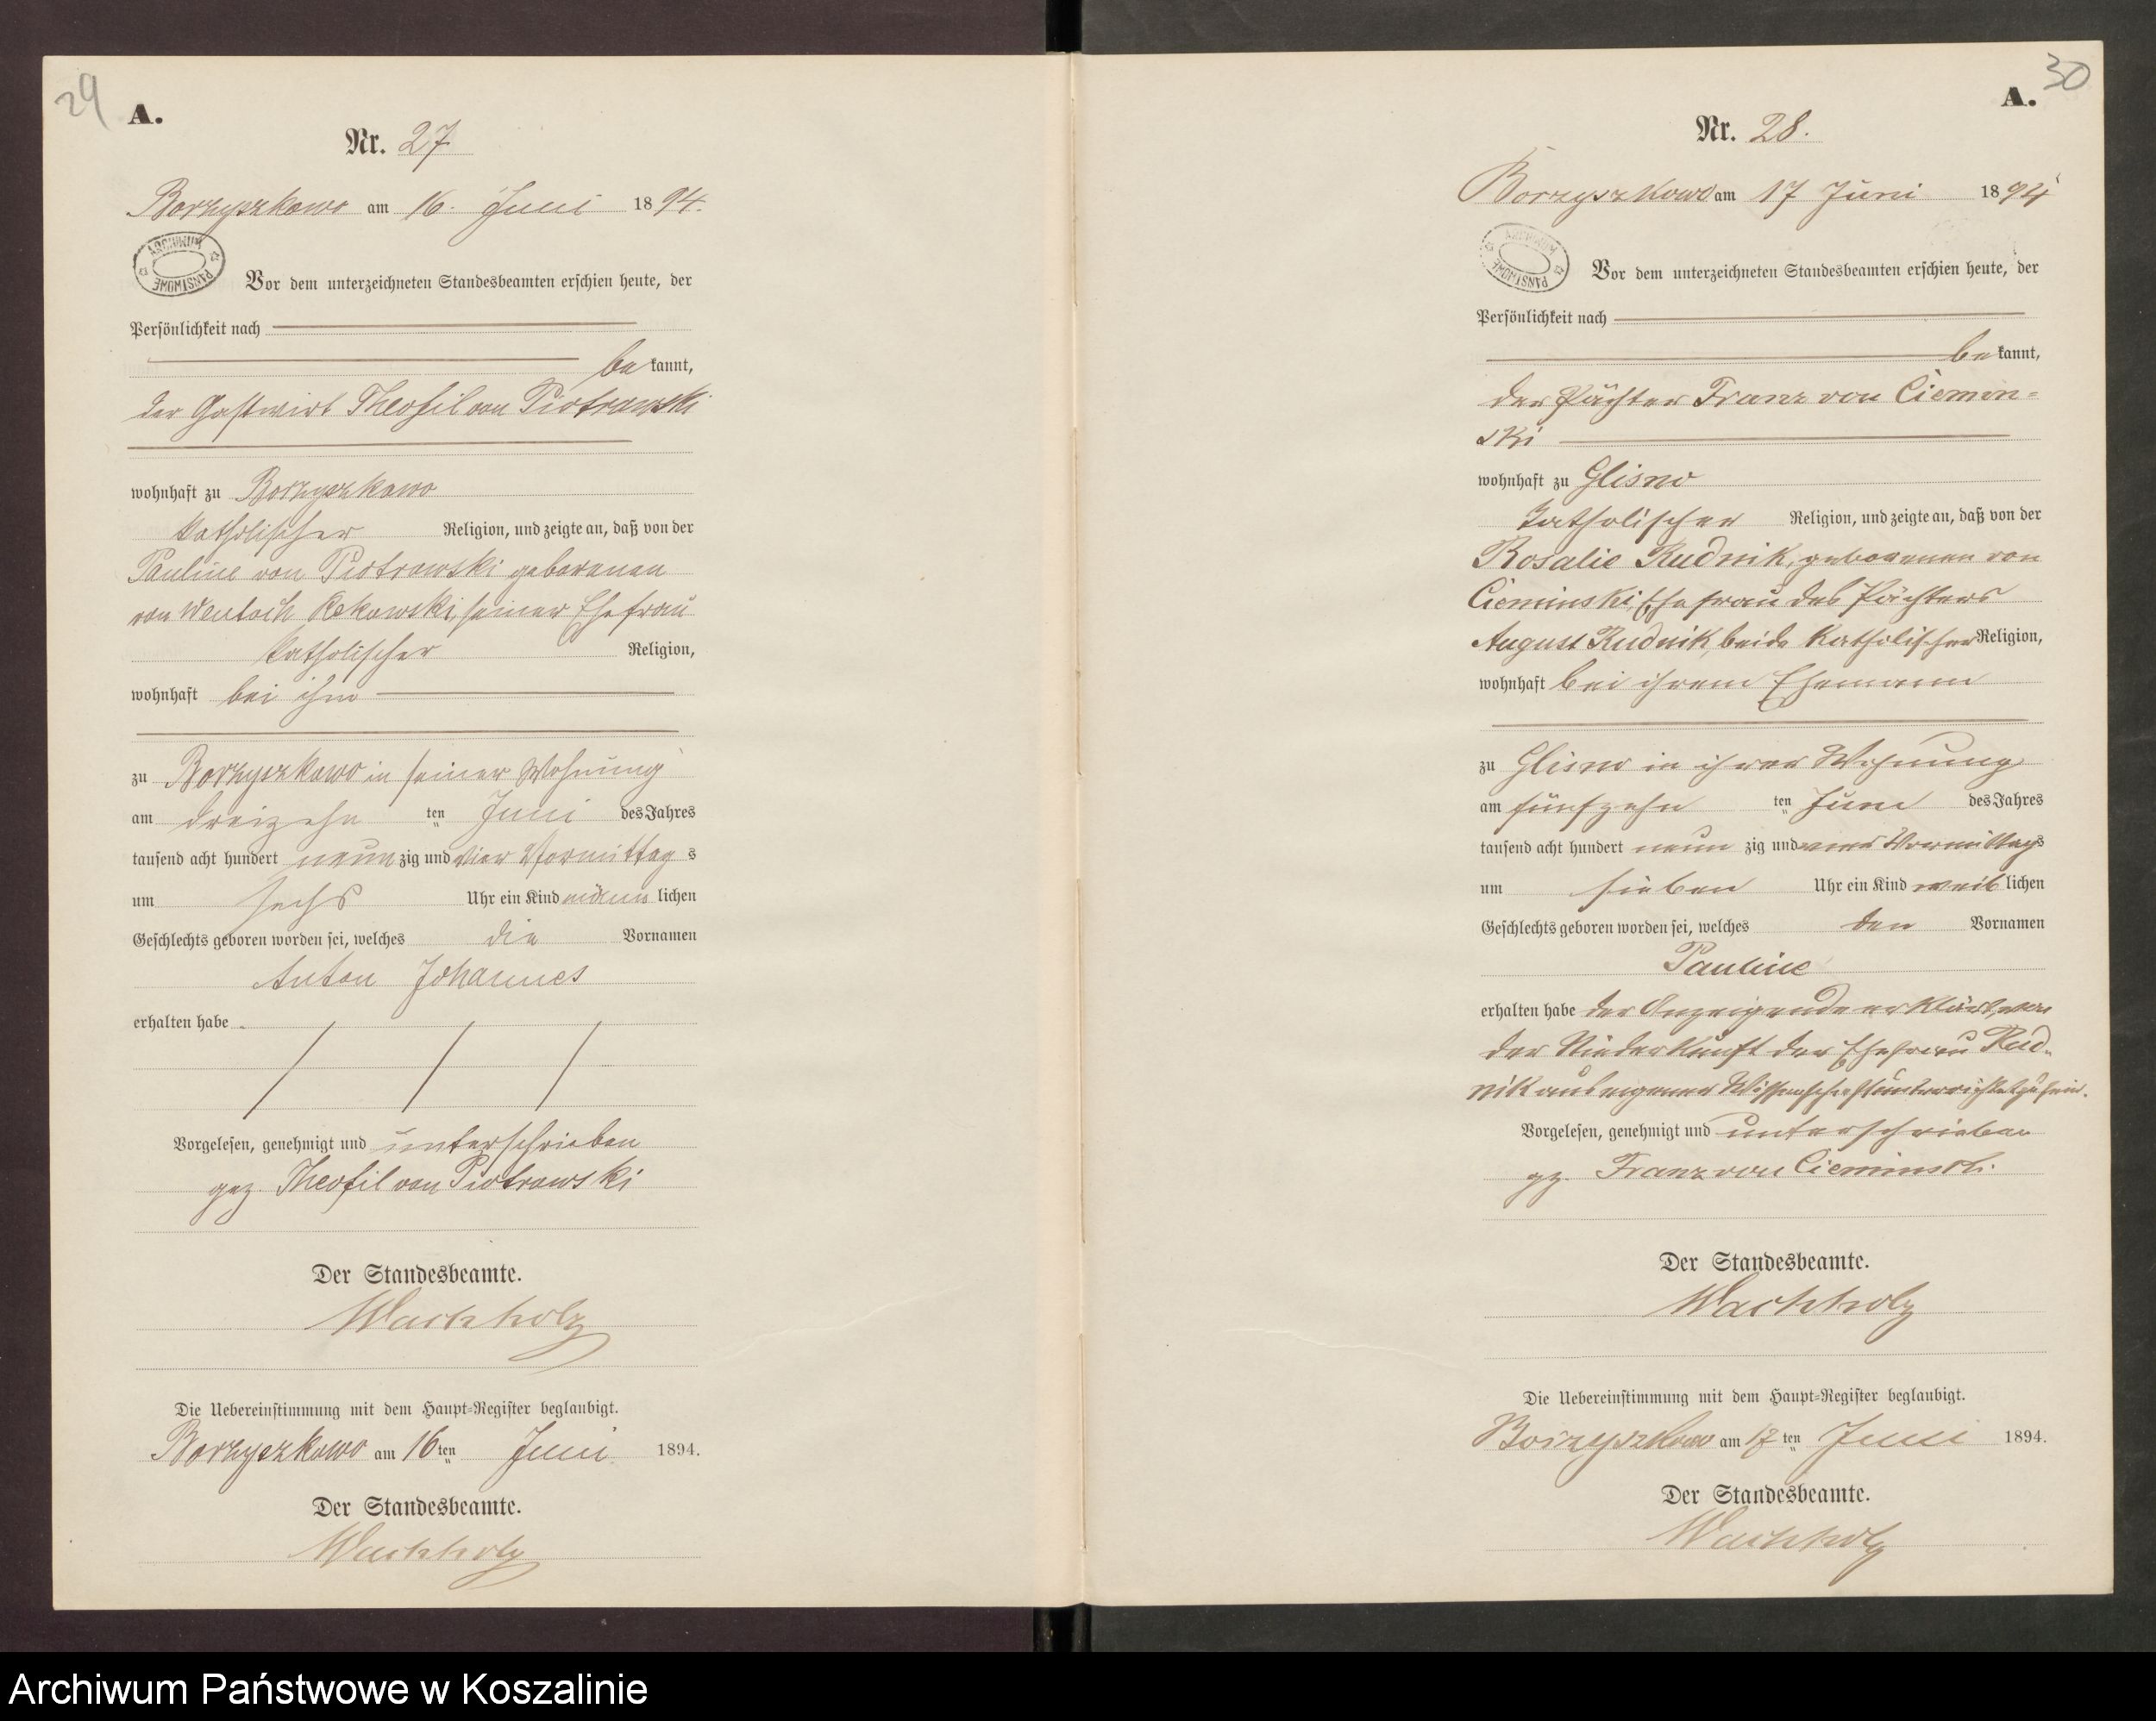 29
A.
Nr. 27
Borzyszkowo am 16. Juni 1894.
ARCHIWUM PAŃSTWOWE
Vor dem unterzeichneten Standesbeamten erschien heute, der
Persönlichkeit nach
bekannt,
der Gastwirt Theofil von Piotrowski
wohnhaft zu Borzyszkowo
katholischer Religion, und zeigte an, daß von der
Pauline von Piotrowski geborenen
von Wentoch Rekowski, seiner Ehefrau
katholischer Religion,
wohnhaft bei ihm
zu Borzyszkowo in seiner Wohnung
am dreizehn ten Juni des Jahres
tausend acht hundert neunzig und vier Vormittags
um sechs Uhr ein Kind männlichen
Geschlechts geboren worden sei, welches die Vornamen
Anton Johannes
erhalten habe
Vorgelesen, genehmigt und unterschrieben
gez. Theofil von Piotrowski
Der Standesbeamte.
Wachholz
Die Uebereinstimmung mit dem Haupt-Register beglaubigt.
Borzyszkowo am 16ten Juni 1894.
Der Standesbeamte.
Wachholz
30
A.
Nr. 28.
Borzyszkowo am 17 Juni 1894
ARCHIWUM PAŃSTWOWE
Vor dem unterzeichneten Standesbeamten erschien heute, der
Persönlichkeit nach
bekannt,
der Pächter Franz von Ciemin-
ski
wohnhaft zu Glisno
katholischer Religion, und zeigte an, daß von der
Rosalie Rudnik, geborenen von
Cieminski, Ehefrau des Pächters
August Rudnik, beide katholischer Religion,
wohnhaft bei ihrem Ehemann
zu Glisno in ihrer Wohnung
am fünfzehn ten Juni des Jahres
tausend acht hundert neunzig und vier Vormittags
um sieben Uhr ein Kind weiblichen
Geschlechts geboren worden sei, welches den Vornamen
Pauline
erhalten habe der Anzeigende erklärt, von
der Niederkunft der Ehefrau Rud-
nik aus eigener Wissenschaft unterrichtet zu sein.
Vorgelesen, genehmigt und unterschrieben
gz. Franz von Cieminski.
Der Standesbeamte.
Wachholz
Die Uebereinstimmung mit dem Haupt-Register beglaubigt.
Borzyszkowo am 17ten Juni 1894.
Der Standesbeamte.
Wachholz
Archiwum Państwowe w Koszalinie